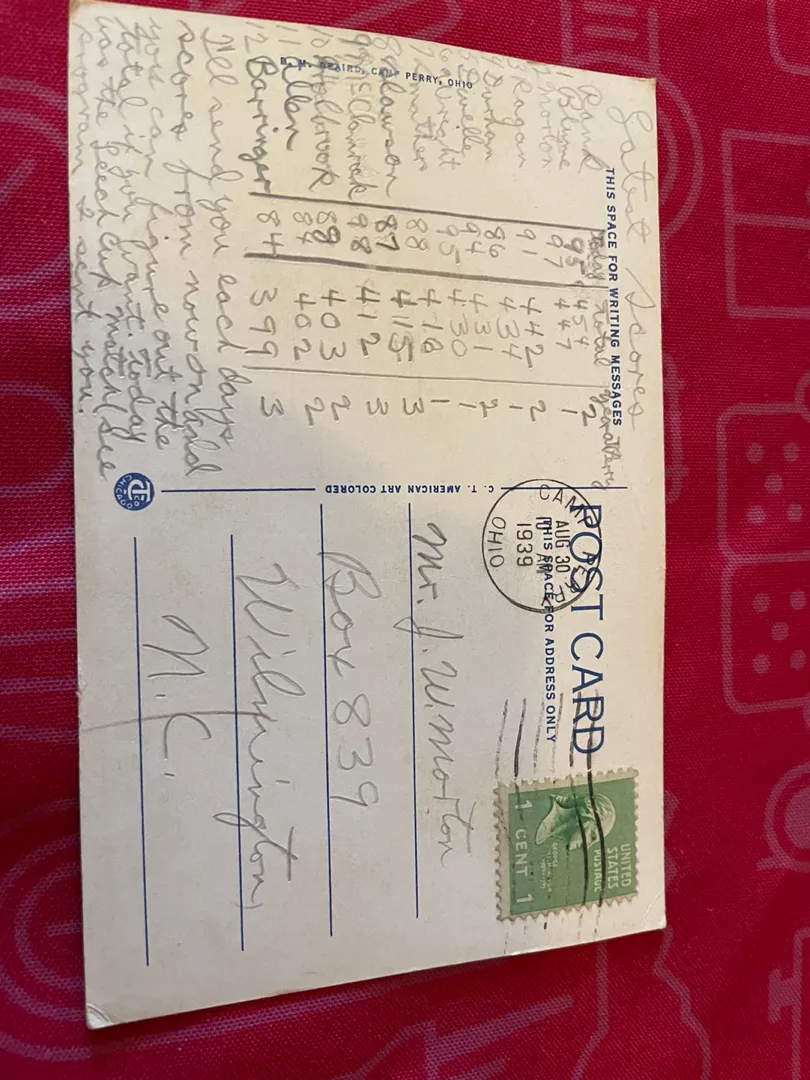 Latest Scores
Rank today total
1 95 454 2
2 Morton 97 447 1
3 Ragan 91 442 2
4 86 434 1
5 94 431 2
6 Wright 95 430 1
7 88 416 1
8 Lawson 87 415 3
9 98 412 3
10 Holbrook 89 403 2
11 Allen 84 402 2
12 Barringer 84 399 3
I'll send you each days
scores from now on and
you can figure out the
total if you want. Today
was the Leech Cup match (See
program I sent you.
THIS SPACE FOR WRITING MESSAGES
B. M. BEAIRD, CAMP PERRY, OHIO
C. T. AMERICAN ART COLORED
CT CO
CHICAGO
POST CARD
THIS SPACE FOR ADDRESS ONLY
CAMP PERRY
AUG 30
AM
1939
OHIO
UNITED
STATES
POSTAGE
GEORGE
WASHINGTON
1 CENT 1
Mr. J. W. Morton
Box 839
Wilmington,
N. C.